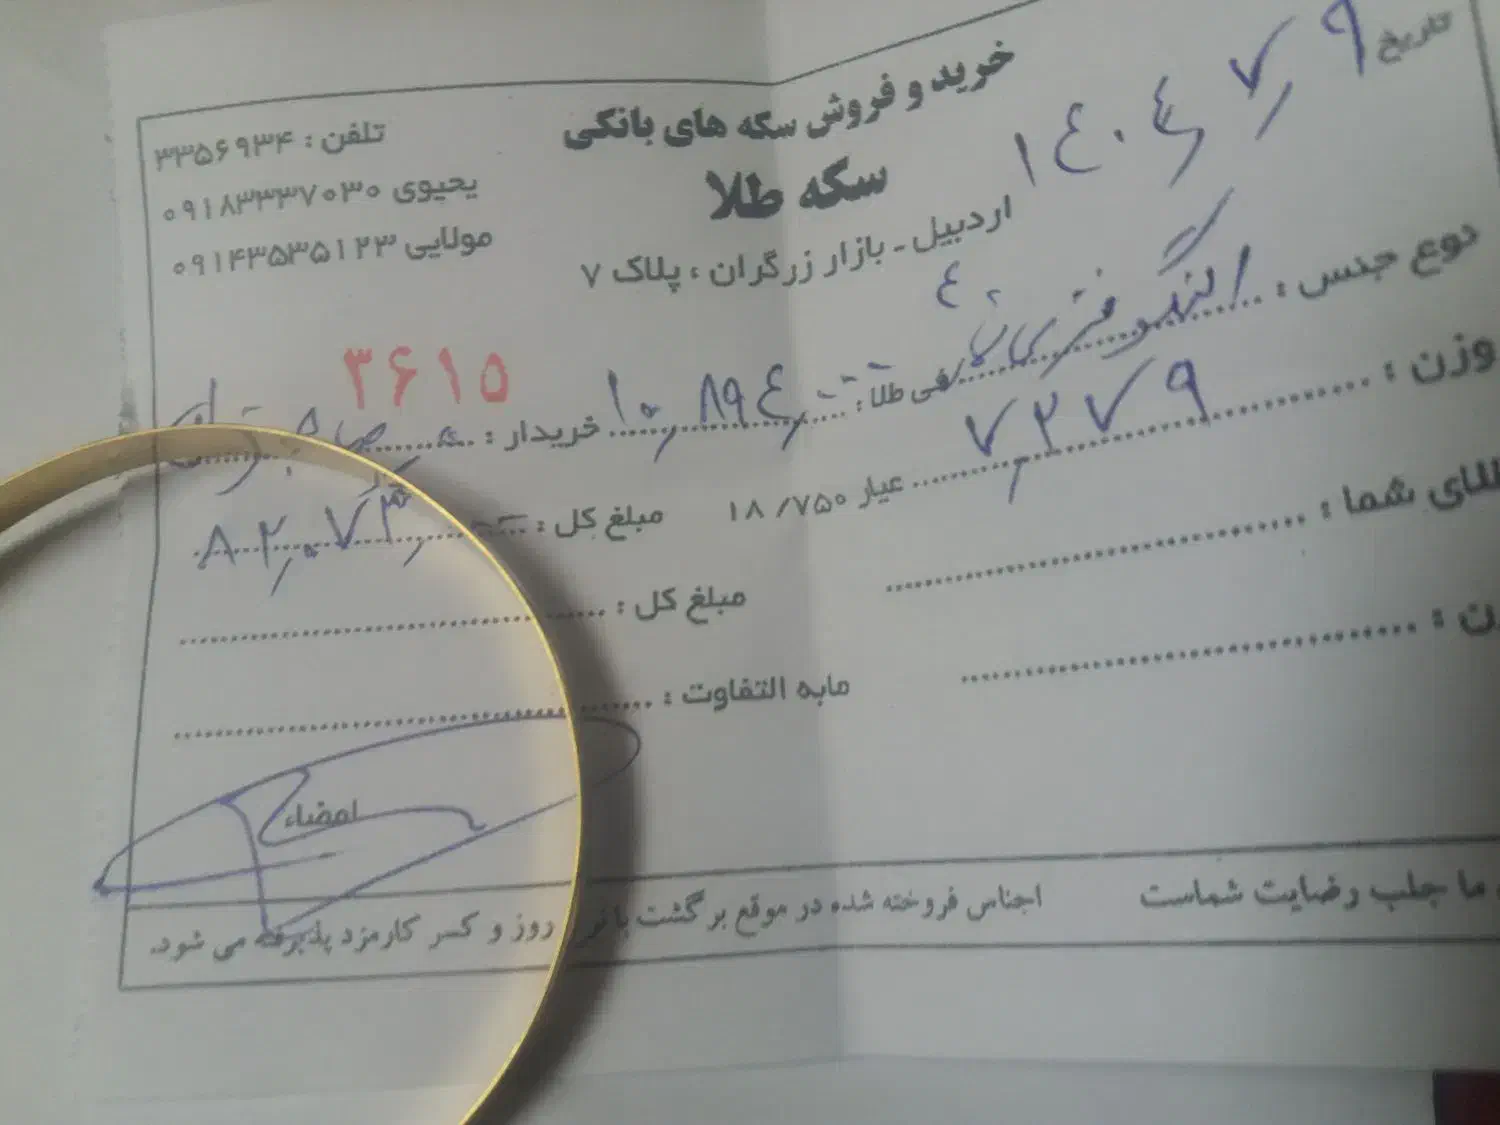 خرید و فروش سکه های بانکی
سکه طلا
اردبیل - بازار زرگران ، پلاک ۷
تلفن : ۳۳۵۶۹۳۴
یحیوی ۰۹۱۸۳۳۳۷۰۳۰
مولایی ۰۹۱۴۳۵۳۵۱۲۳
تاریخ ۱۴۰۴/۷/۹
نوع جنس : النگو
فی طلا : ۱۰,۸۹۴,۰۰۰
خریدار :
۳۶۱۵
وزن : ۷,۲۷۹
عیار ۱۸/۷۵۰
مبلغ کل : ۸۲,۰۷۳,۰۰۰
طلای شما :
مبلغ کل :
وزن :
مابه التفاوت :
امضاء
ما جلب رضایت شماست
اجناس فروخته شده در موقع برگشت با نرخ روز و کسر کارمزد پذیرفته می شود.